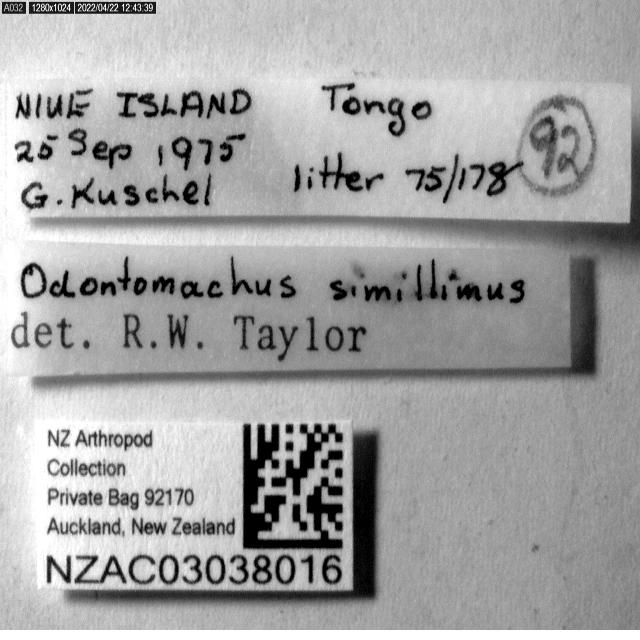 A032 1280x1024 2022/04/22 12:43:39
NIUE ISLAND Tongo
25 Sep 1975
G. Kuschel litter 75/178 92
Odontomachus simillimus
det. R.W. Taylor
NZ Arthropod
Collection
Private Bag 92170
Auckland, New Zealand
NZAC03038016